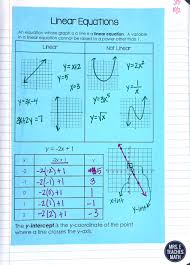 Linear Equations
An equation whose graph is a line is a linear equation. A variable in a linear equation cannot be raised to a power other than 1.
Linear
Not Linear
y=x+2
y=5
x=3
y=2x²
y=3x-4
3x+2y=7
y=3x⁵
y=√x
y = -2x + 1
x
-2x+1
y
-2
-2(-2)+1
5
-1
-2(-1)+1
3
0
-2(0)+1
1
-2(1)+1
-1
2
-2(2)+1
-3
x-int
y-int
The y-intercept is the y-coordinate of the point where a line crosses the y-axis.
MRS. E
TEACHES
MATH